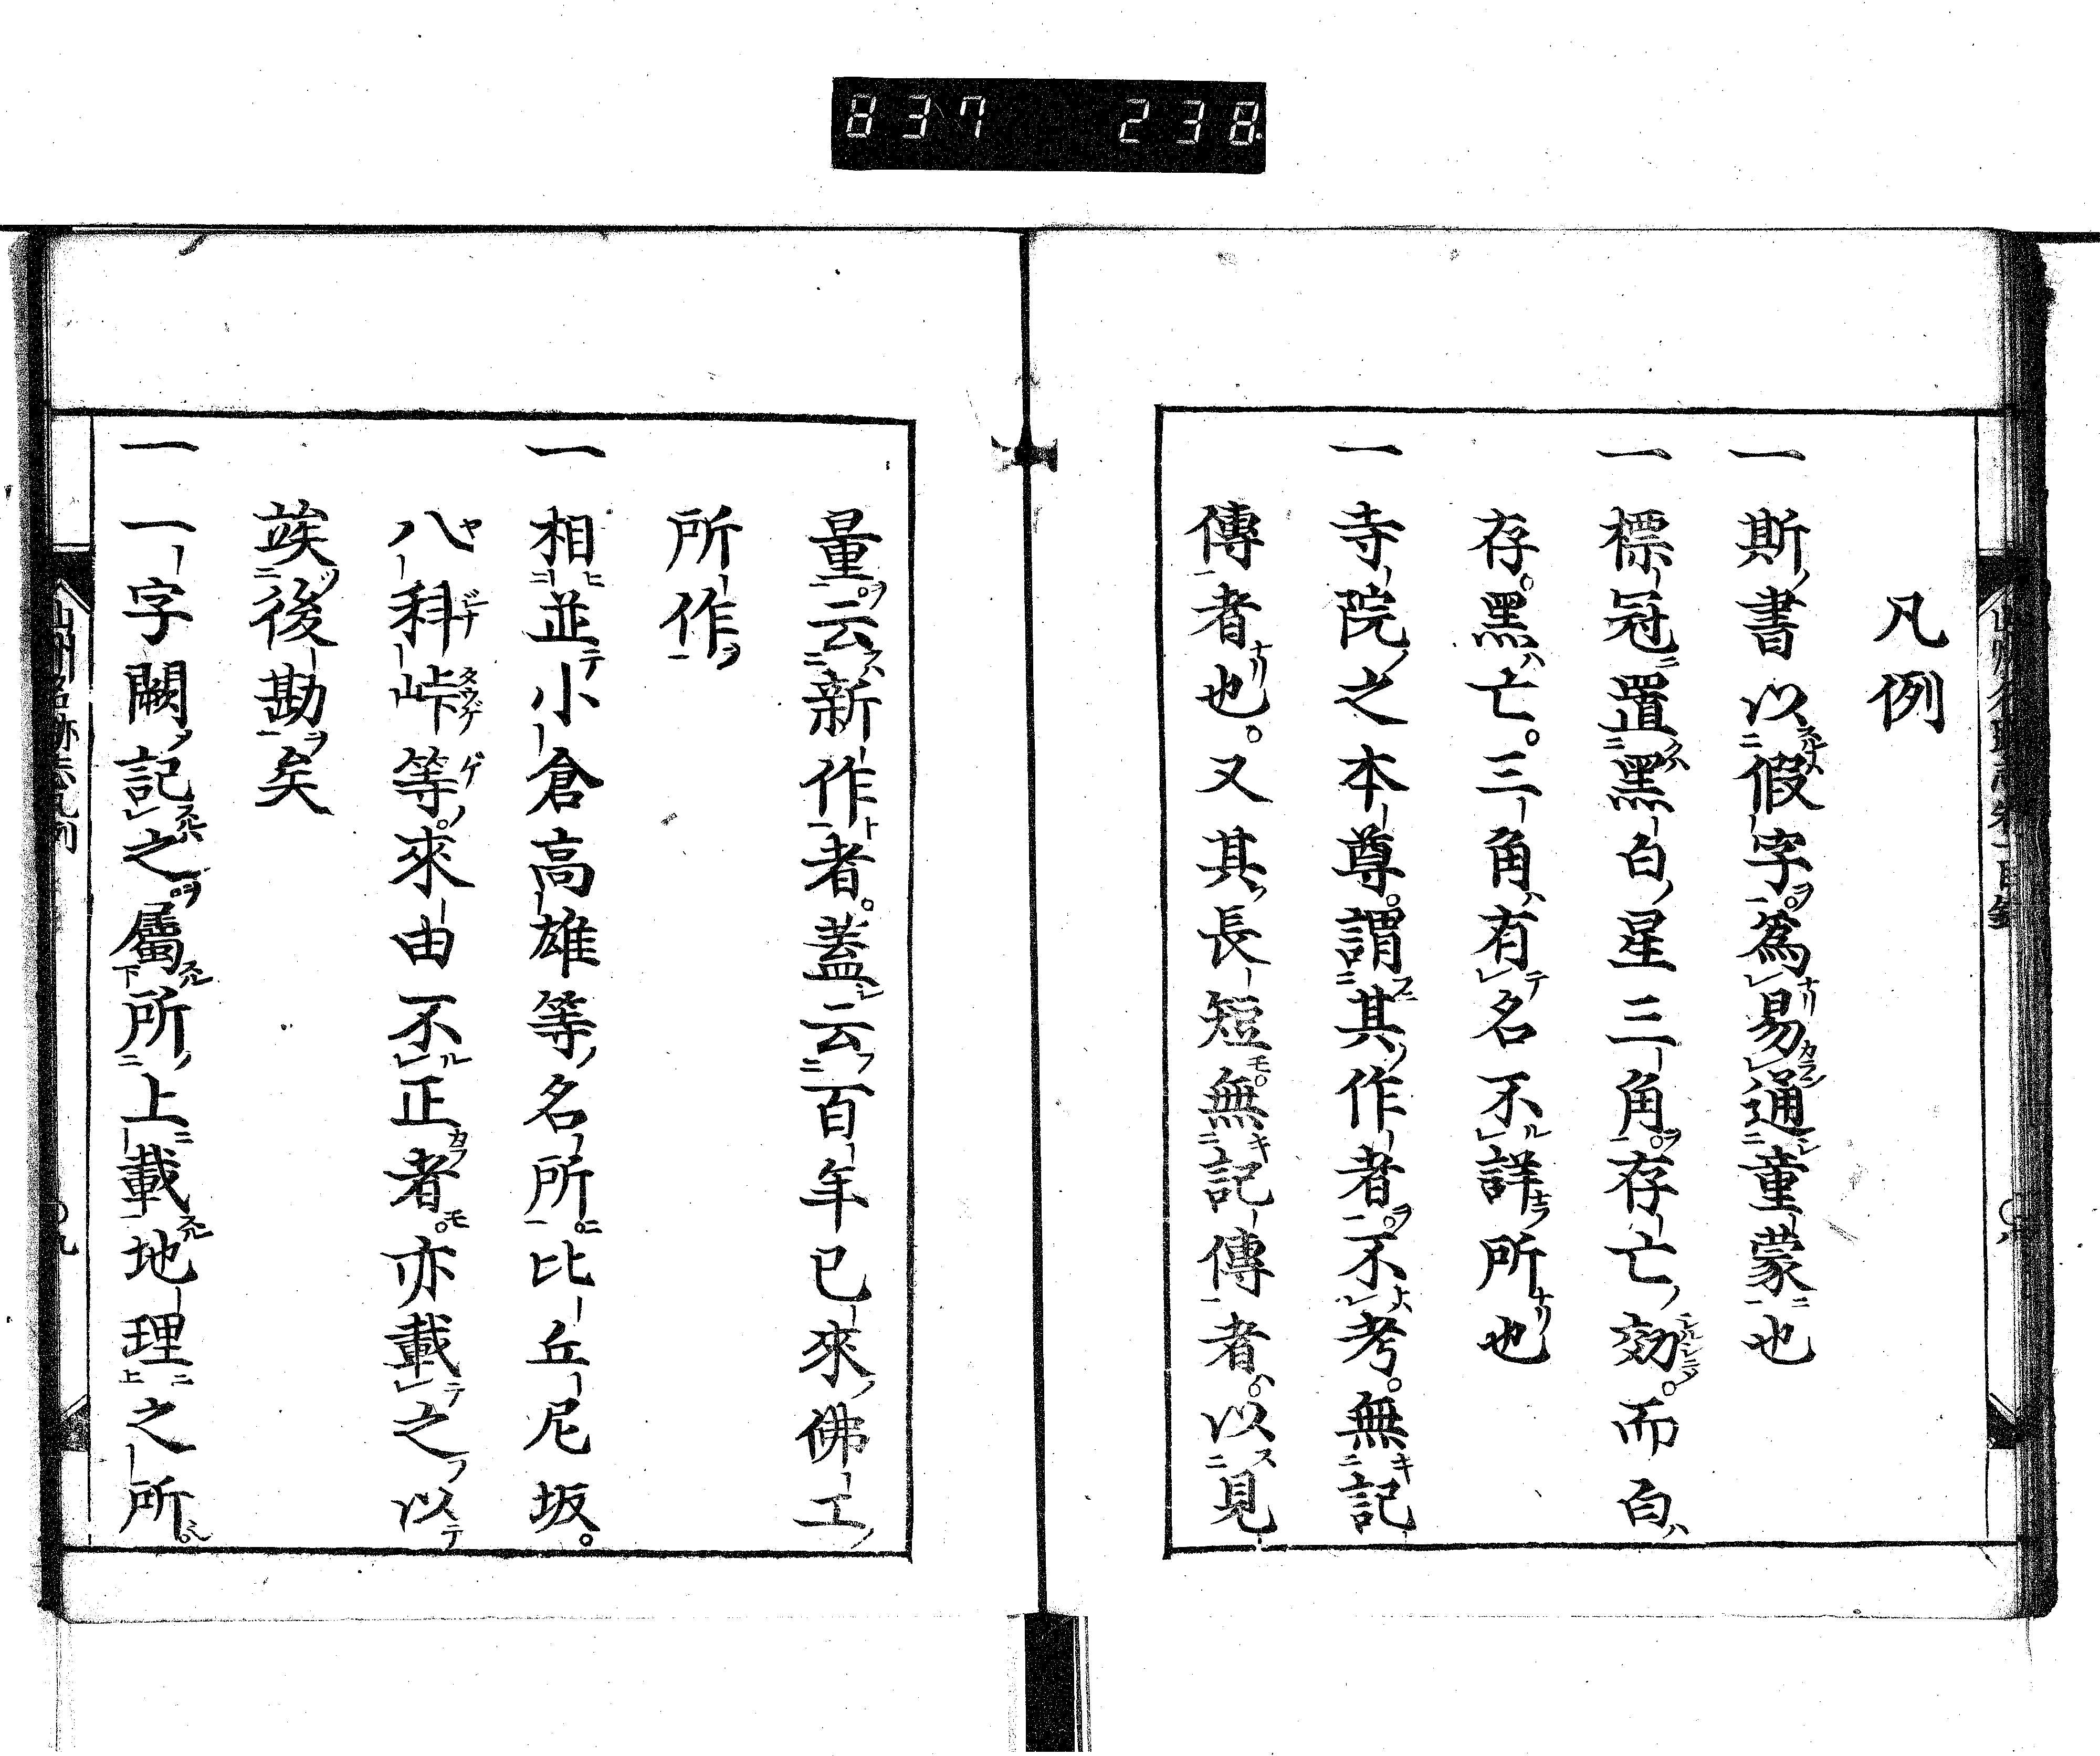 837 238
凡例
一斯書以假字爲易通童蒙也
一標冠置黑白星三角存亡効而白
存黑亡三角有名不詳所也
一寺院之本尊謂其作者不考無記
傳者也又其長短無記傳者以見
量云新作者蓋云百年已來佛工
所作
一相並小倉高雄等名所比丘尼坂
八科峠等來由不正者亦載之以
竢後勘矣
一一字闕記之屬所上載地理之所